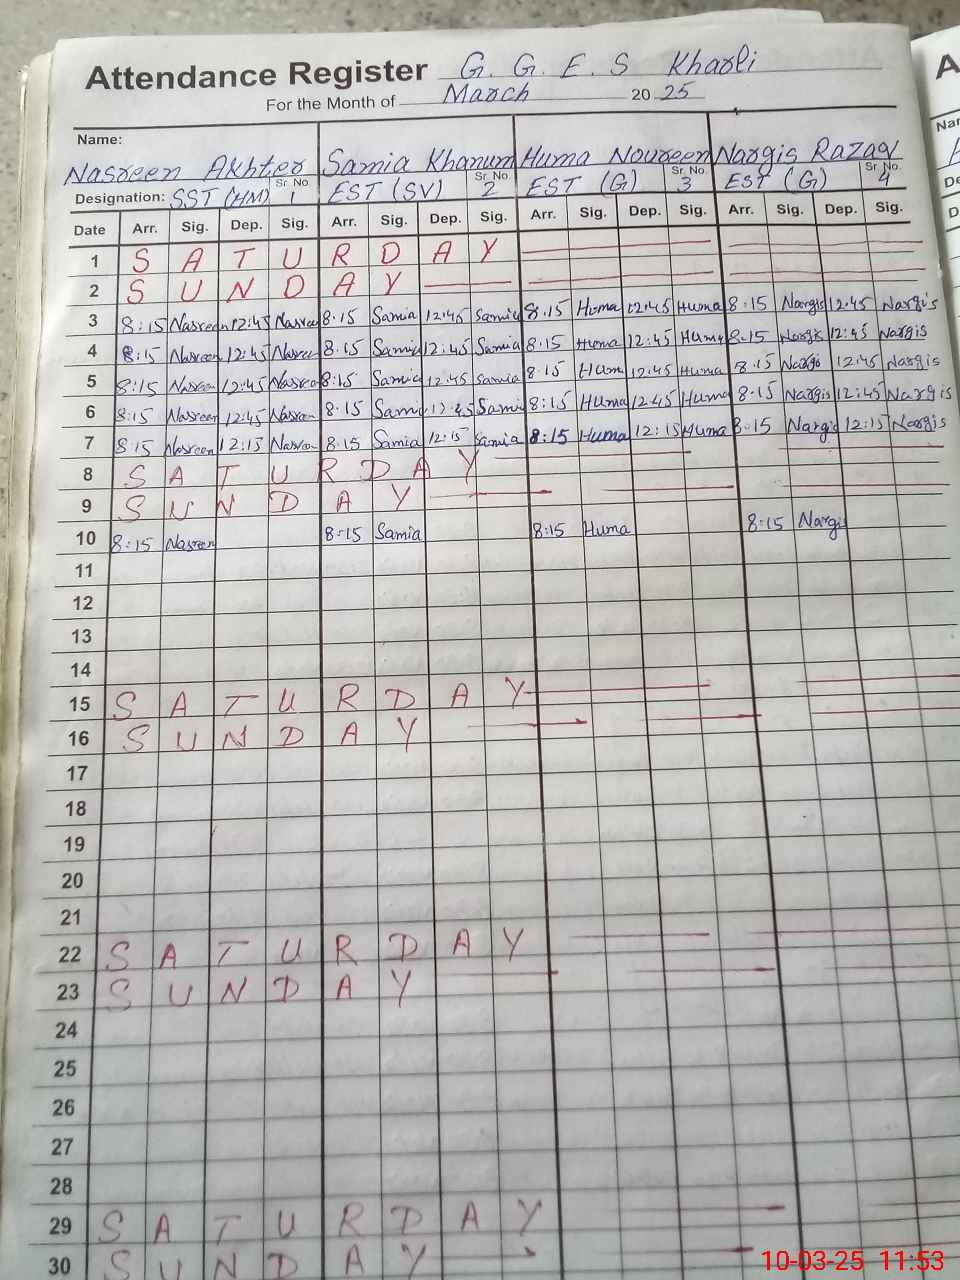 Attendance Register G. G. E. S Kharli
For the Month of March 2025
Name:
Nasreen Akhter Samia Khanum Huma Noureen Nargis Razaq
Designation: SST (HM) Sr. No. 1 EST (SV) Sr. No. 2 EST (G) Sr. No. 3 EST (G) Sr. No. 4
Date Arr. Sig. Dep. Sig. Arr. Sig. Dep. Sig. Arr. Sig. Dep. Sig. Arr. Sig. Dep. Sig.
1 S A T U R D A Y
2 S U N D A Y
3 8:15 Nasreen 12:45 Nasreen 8:15 Samia 12:45 Samia 8:15 Huma 12:45 Huma 8:15 Nargis 12:45 Nargis
4 8:15 Nasreen 12:45 Nasreen 8:15 Samia 12:45 Samia 8:15 Huma 12:45 Huma 8:15 Nargis 12:45 Nargis
5 8:15 Nasreen 12:45 Nasreen 8:15 Samia 12:45 Samia 8:15 Huma 12:45 Huma 8:15 Nargis 12:45 Nargis
6 8:15 Nasreen 12:45 Nasreen 8:15 Samia 12:45 Samia 8:15 Huma 12:45 Huma 8:15 Nargis 12:45 Nargis
7 8:15 Nasreen 12:15 Nasreen 8:15 Samia 12:15 Samia 8:15 Huma 12:15 Huma 8:15 Nargis 12:15 Nargis
8 S A T U R D A Y
9 S U N D A Y
10 8:15 Nasreen 8:15 Samia 8:15 Huma 8:15 Nargis
11
12
13
14
15 S A T U R D A Y
16 S U N D A Y
17
18
19
20
21
22 S A T U R D A Y
23 S U N D A Y
24
25
26
27
28
29 S A T U R D A Y
30 S U N D A Y
10-03-25 11:53